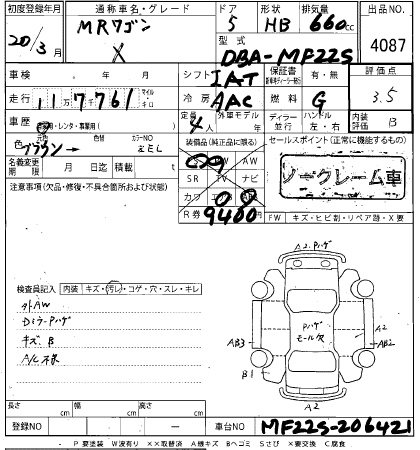 初度登録年月 通称車名・グレード ドア 形状 排気量 出品NO.
20/3月 MRワゴン 5 HB 660cc 4087
X 型式 DBA-MF22S
車検 年 月 シフト IAT 保証書 有・無 評価点
走行 11万7761 マイル キロ 冷房 AAC 燃料 G 3.5
車歴 自家用・レンタ・事業用( ) 定員 4人 外車モデル 年 ディーラー 並行 ハンドル 左・右 内装評価 B
色 ブラウン→ 色替 カラーNO ZEL 装備品(純正品に限る) セールスポイント(正常に機能するもの)
名義変更期限 月 日迄 積載 t SR TV ナビ AW ノークレーム車
注意事項(欠品・修復・不具合箇所および状態) カワ
R券 9400 FW キズ・ヒビ割・リペア跡・X要
A2.Pハゲ
検査員記入 内装 キズ・汚レ・コゲ・穴・スレ・キレ
外AW
DミラーPハゲ
キズ、B
A/C不良
Pハゲ
モール欠
AB3 A2 AB2
B1
A2
長さ cm 幅 cm 高さ cm
登録NO ー 車台NO MF22S-206421
P 要塗装 W波有り XX取替済 A線キズ Bヘコミ Sさび X要交換 C腐食